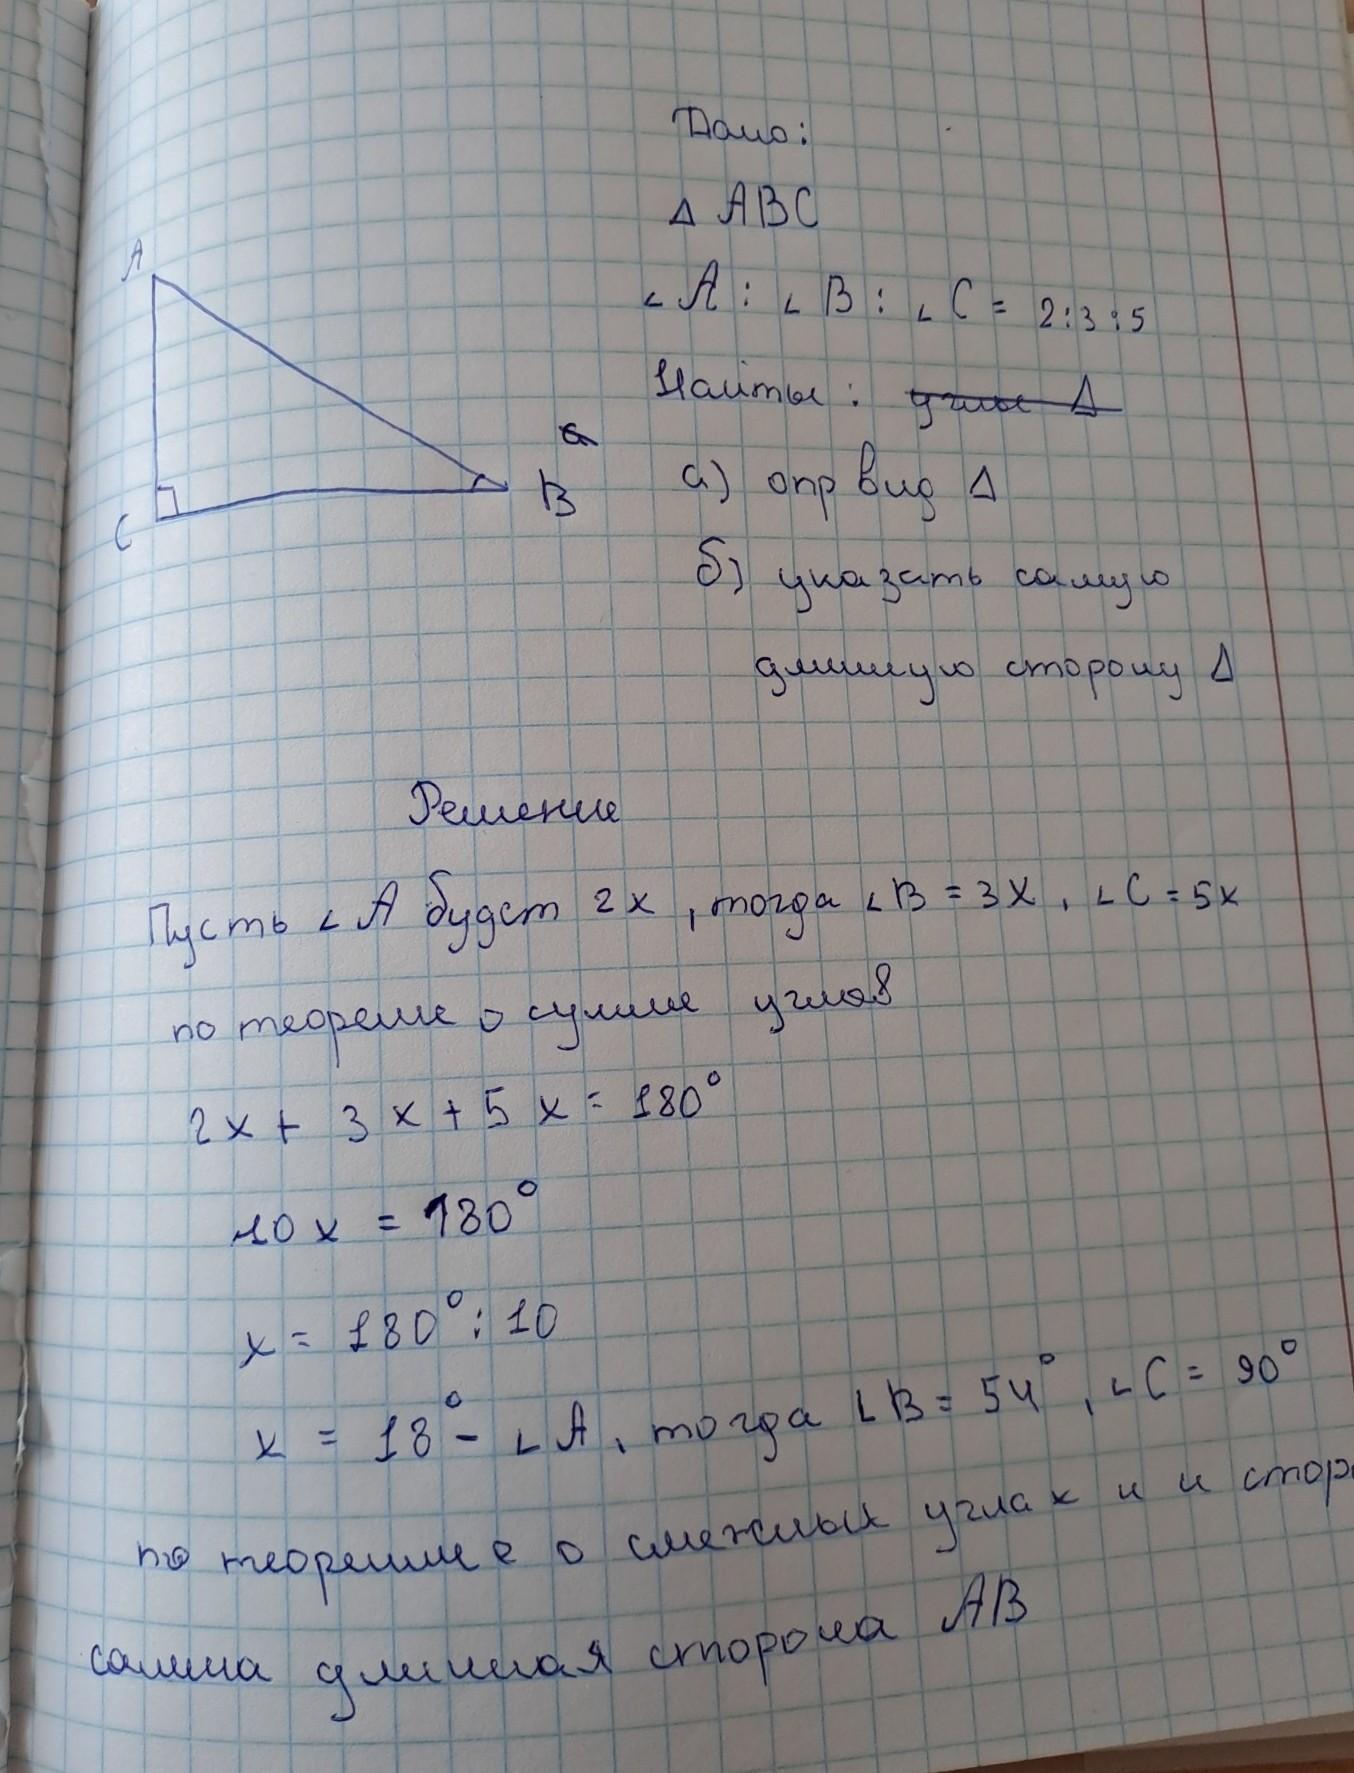 Дано:
△ ABC
∠A : ∠B : ∠C = 2:3:5
Найты: углы △
а) опр вид △
б) указать самую
длинную сторону △
A
B
C
Решение
Пусть ∠A будет 2x, тогда ∠B = 3x, ∠C = 5x
по теореме о сумме углов
2x + 3x + 5x = 180°
10x = 180°
x = 180° : 10
x = 18° - ∠A, тогда ∠B = 54°, ∠C = 90°
по теореме о смежных углах и и стор
самша длинная сторона AB